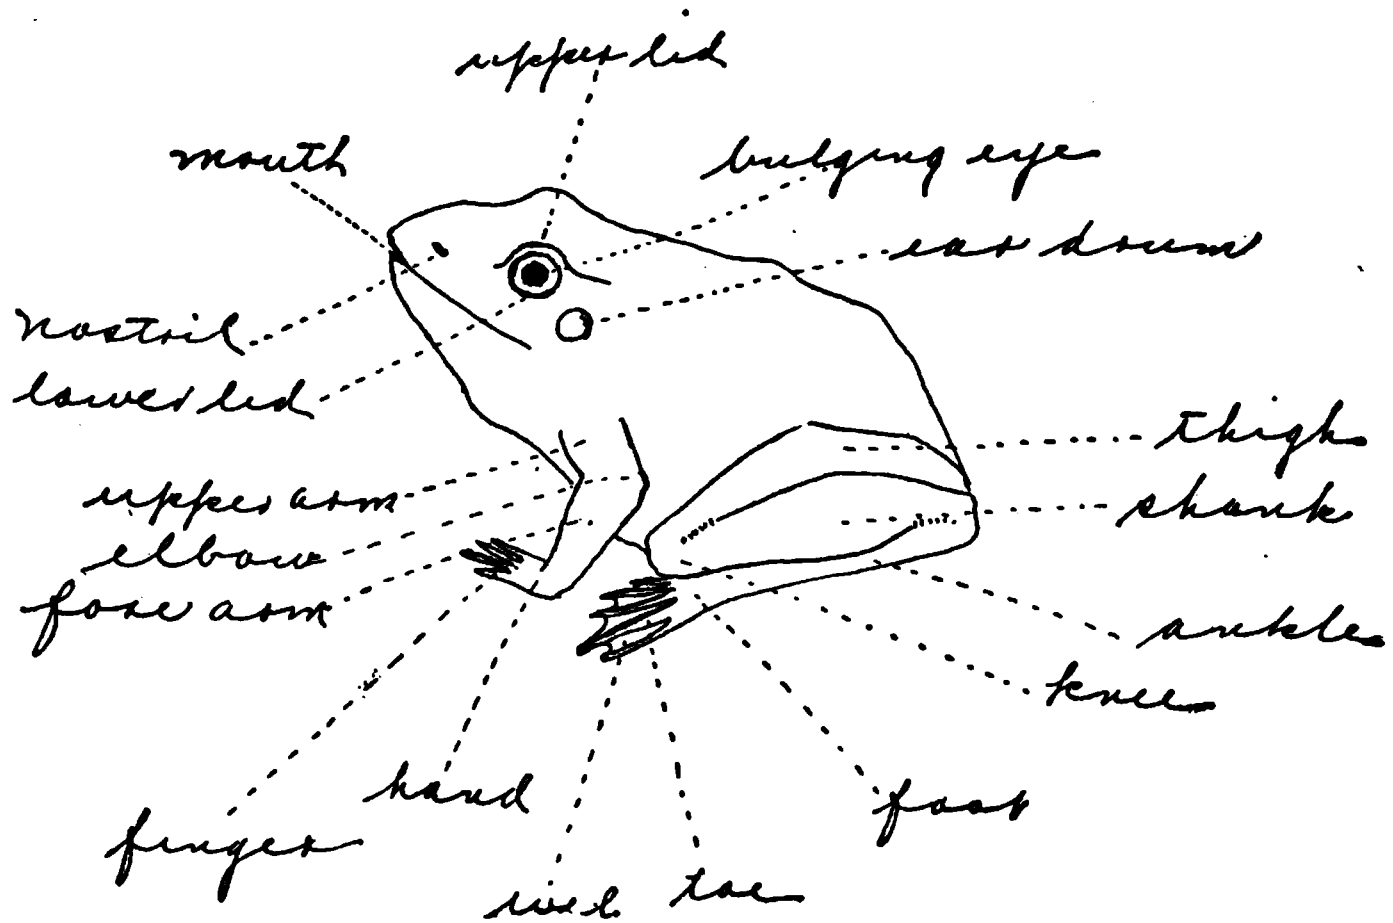 upper lid
mouth
bulging eye
ear drum
nostril
lower lid
thigh
upper arm
shank
elbow
fore arm
ankle
knee
hand
foot
finger
web
toe